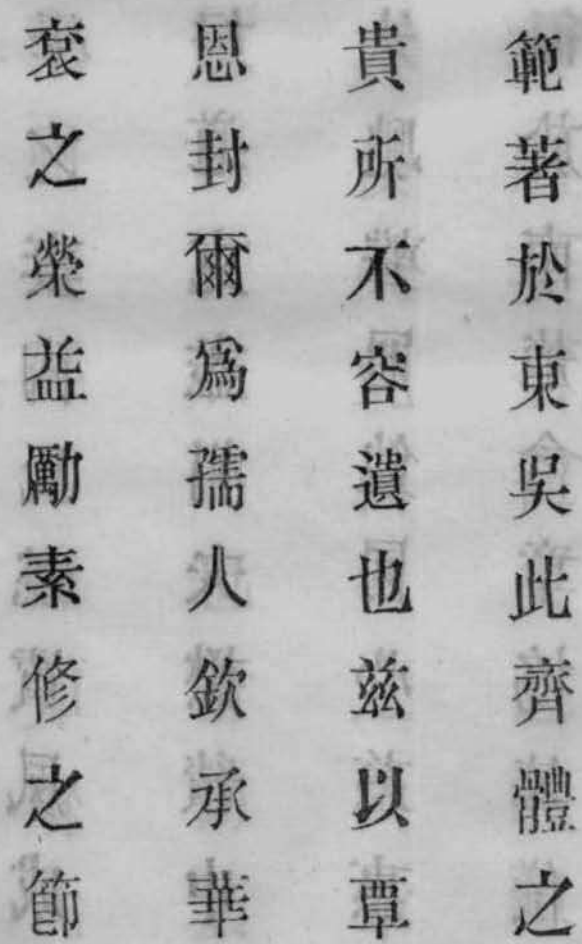 範著於東吳此齊體之
貴所不容遺也茲以覃
恩封爾爲孺人欽承華
袞之榮益勵素修之節